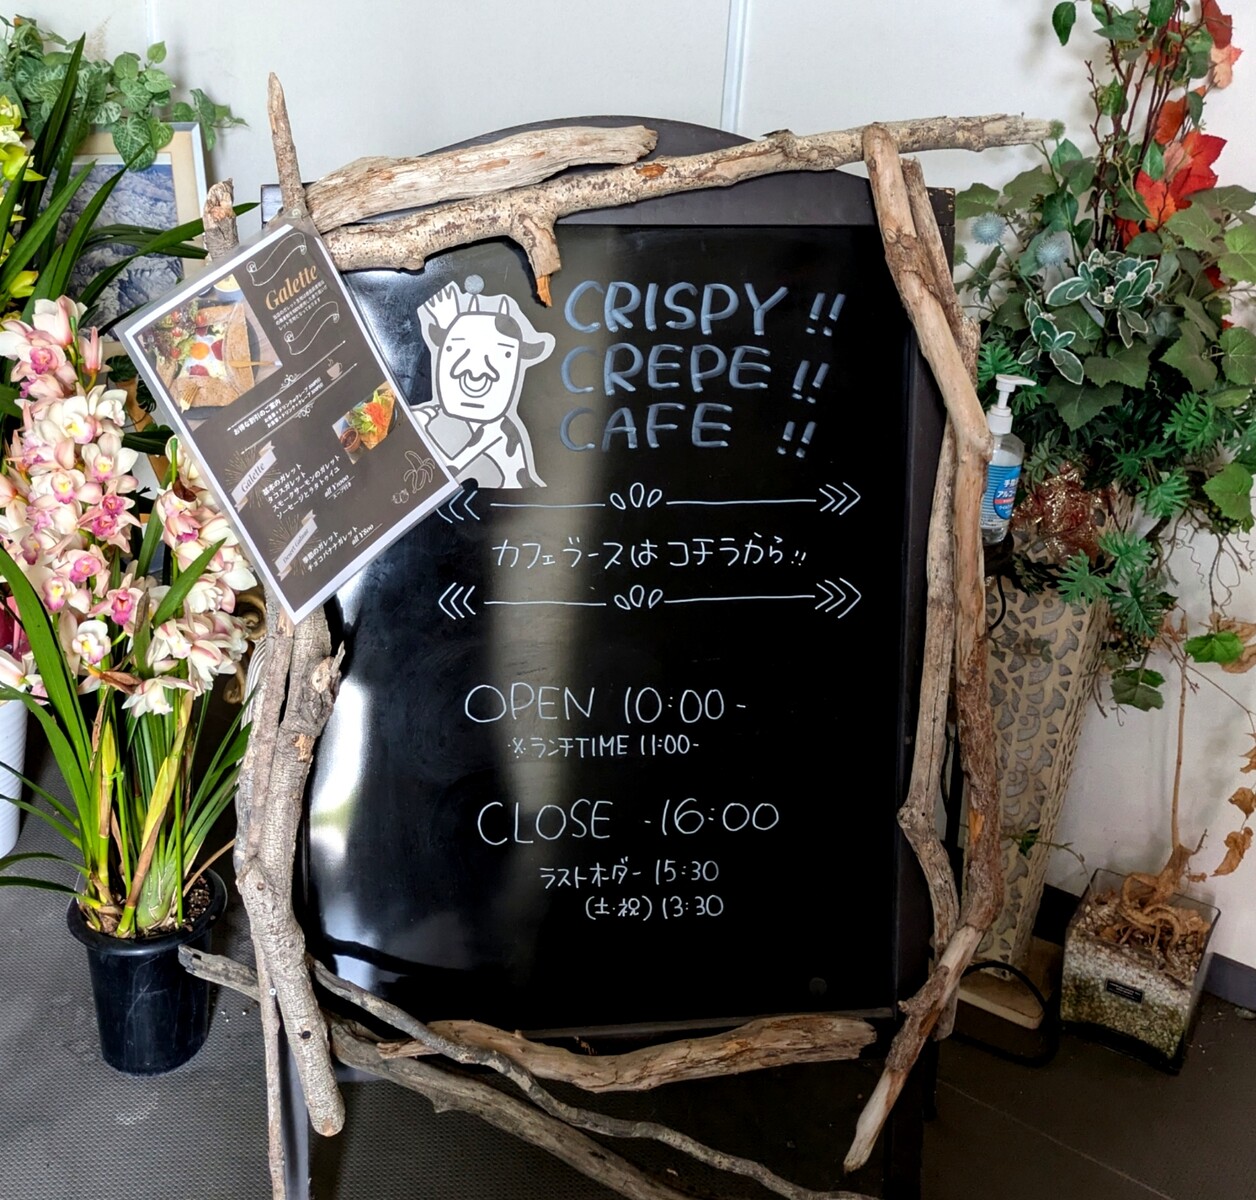 CRISPY !!
CREPE !!
CAFE !!
カフェブースはコチラから!!
OPEN 10:00-
※ランチTIME 11:00-
CLOSE -16:00
ラストオーダー 15:30
(土・祝) 13:30
Galette
お得な割引のご案内
Galette
基本のガレット
タコスガレット
スモークサーモンのガレット
ソーセージとラタトゥイユ
all ¥1000
Dessert Galette
季節のガレット
チョコバナナガレット
all ¥800